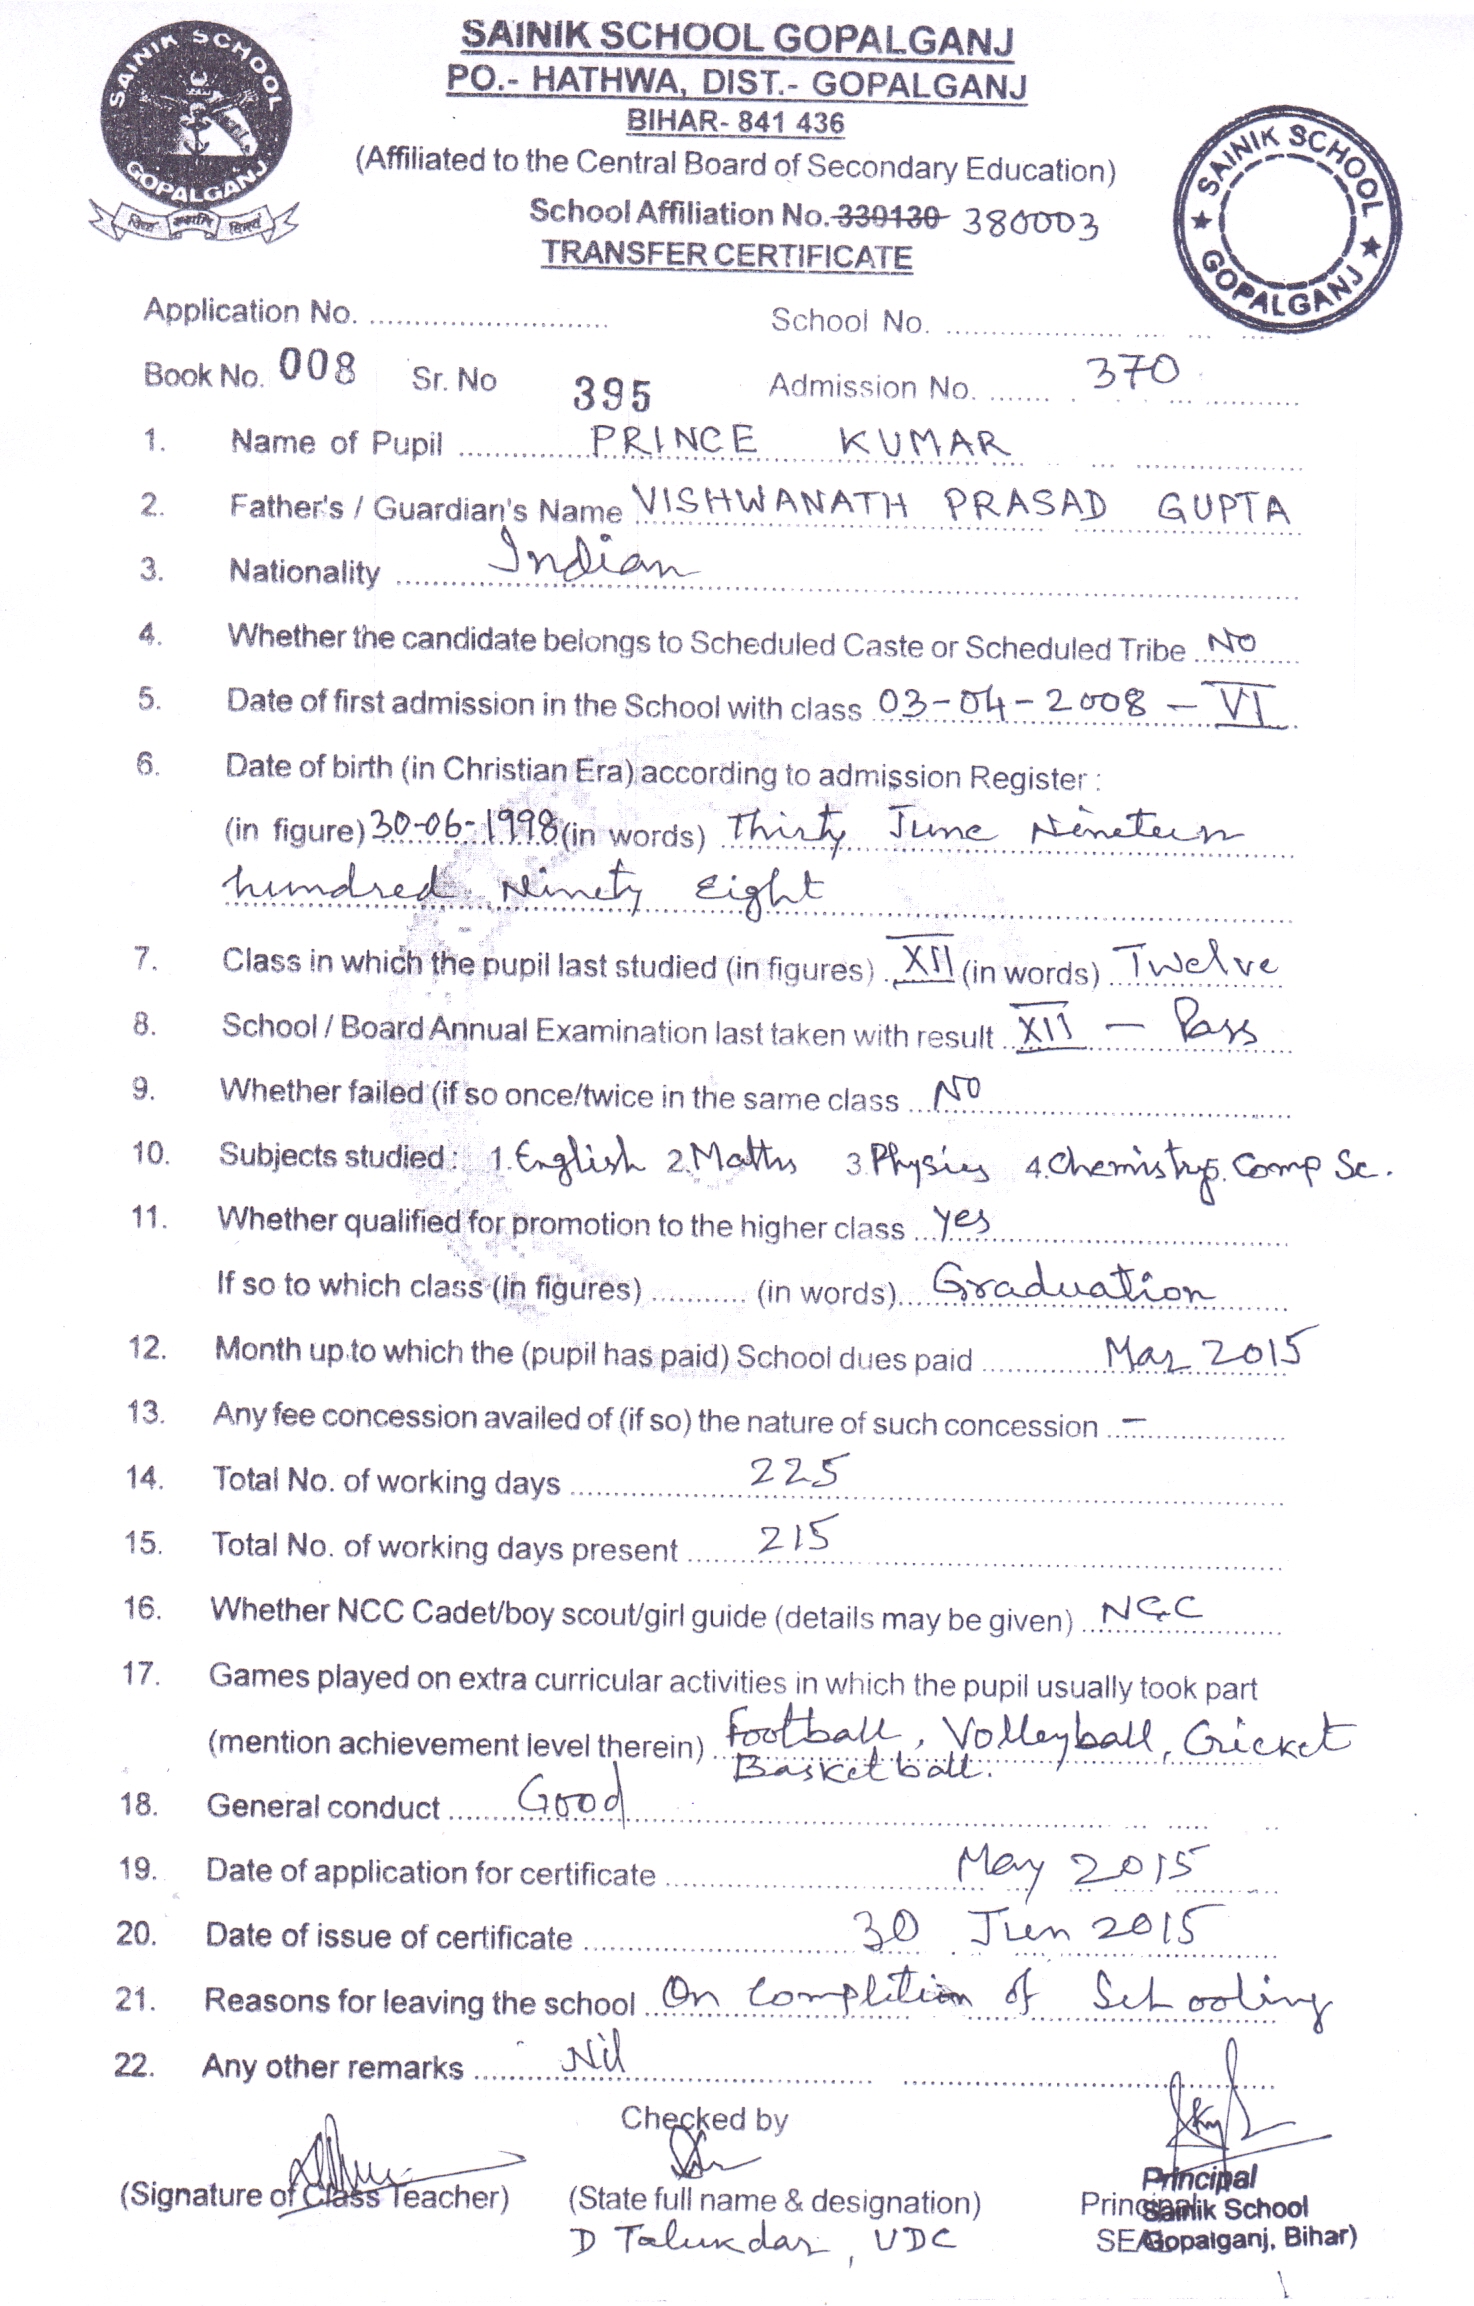 SAINIK SCHOOL
GOPALGANJ
SAINIK SCHOOL GOPALGANJ
PO.- HATHWA, DIST.- GOPALGANJ
BIHAR- 841 436
(Affiliated to the Central Board of Secondary Education)
School Affiliation No. 330130 380003
TRANSFER CERTIFICATE
SAINIK SCHOOL ★ GOPALGANJ ★
Application No. School No.
Book No. 008 Sr. No 395 Admission No. 370
1. Name of Pupil PRINCE KUMAR
2. Father's / Guardian's Name VISHWANATH PRASAD GUPTA
3. Nationality Indian
4. Whether the candidate belongs to Scheduled Caste or Scheduled Tribe NO
5. Date of first admission in the School with class 03-04-2008 - VI
6. Date of birth (in Christian Era) according to admission Register :
(in figure) 30-06-1998 (in words) Thirty June Nineteen
hundred Ninety Eight
7. Class in which the pupil last studied (in figures) XII (in words) Twelve
8. School / Board Annual Examination last taken with result XII - Pass
9. Whether failed (if so once/twice in the same class NO
10. Subjects studied : 1. English 2. Maths 3. Physics 4. Chemistry 5. Comp Sc.
11. Whether qualified for promotion to the higher class yes
If so to which class (in figures) (in words) Graduation
12. Month up to which the (pupil has paid) School dues paid Mar 2015
13. Any fee concession availed of (if so) the nature of such concession -
14. Total No. of working days 225
15. Total No. of working days present 215
16. Whether NCC Cadet/boy scout/girl guide (details may be given) NCC
17. Games played on extra curricular activities in which the pupil usually took part
(mention achievement level therein) Football, Volleyball, Cricket
Basketball.
18. General conduct Good
19. Date of application for certificate May 2015
20. Date of issue of certificate 30 Jun 2015
21. Reasons for leaving the school On Completion of Schooling
22. Any other remarks Nil
Checked by
(Signature of Class Teacher) (State full name & designation) Principal
D Talukdar, UDC
Principal
Sainik School
Gopalganj, Bihar)